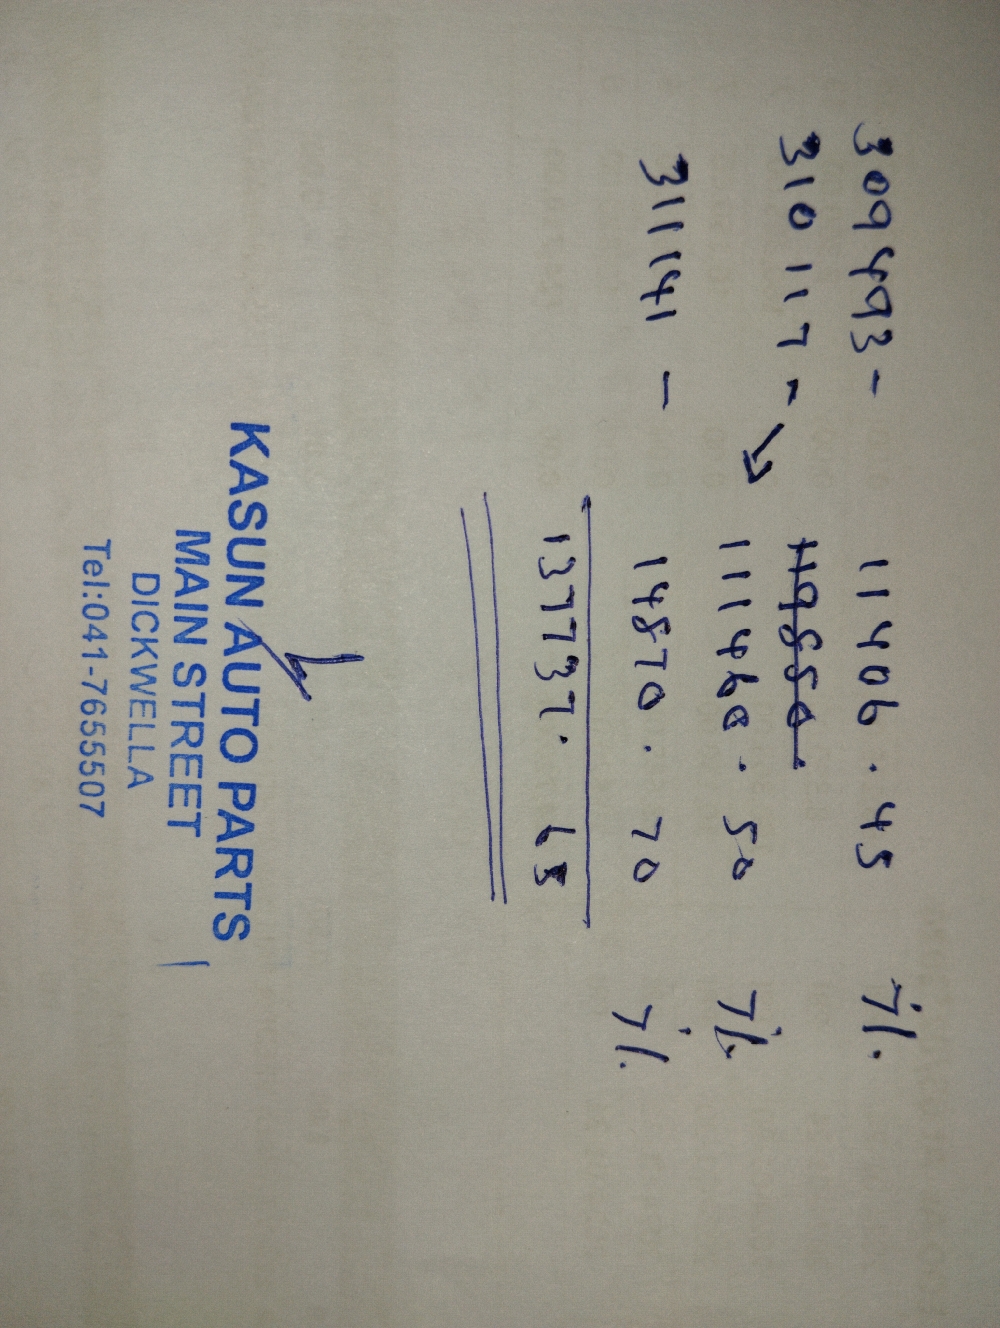 309493 - 11406.45 7%
310117 - 119850
111460.50 7%
311141 - 14870.70 7%
137737.65
KASUN AUTO PARTS
MAIN STREET
DICKWELLA
Tel:041-7655507